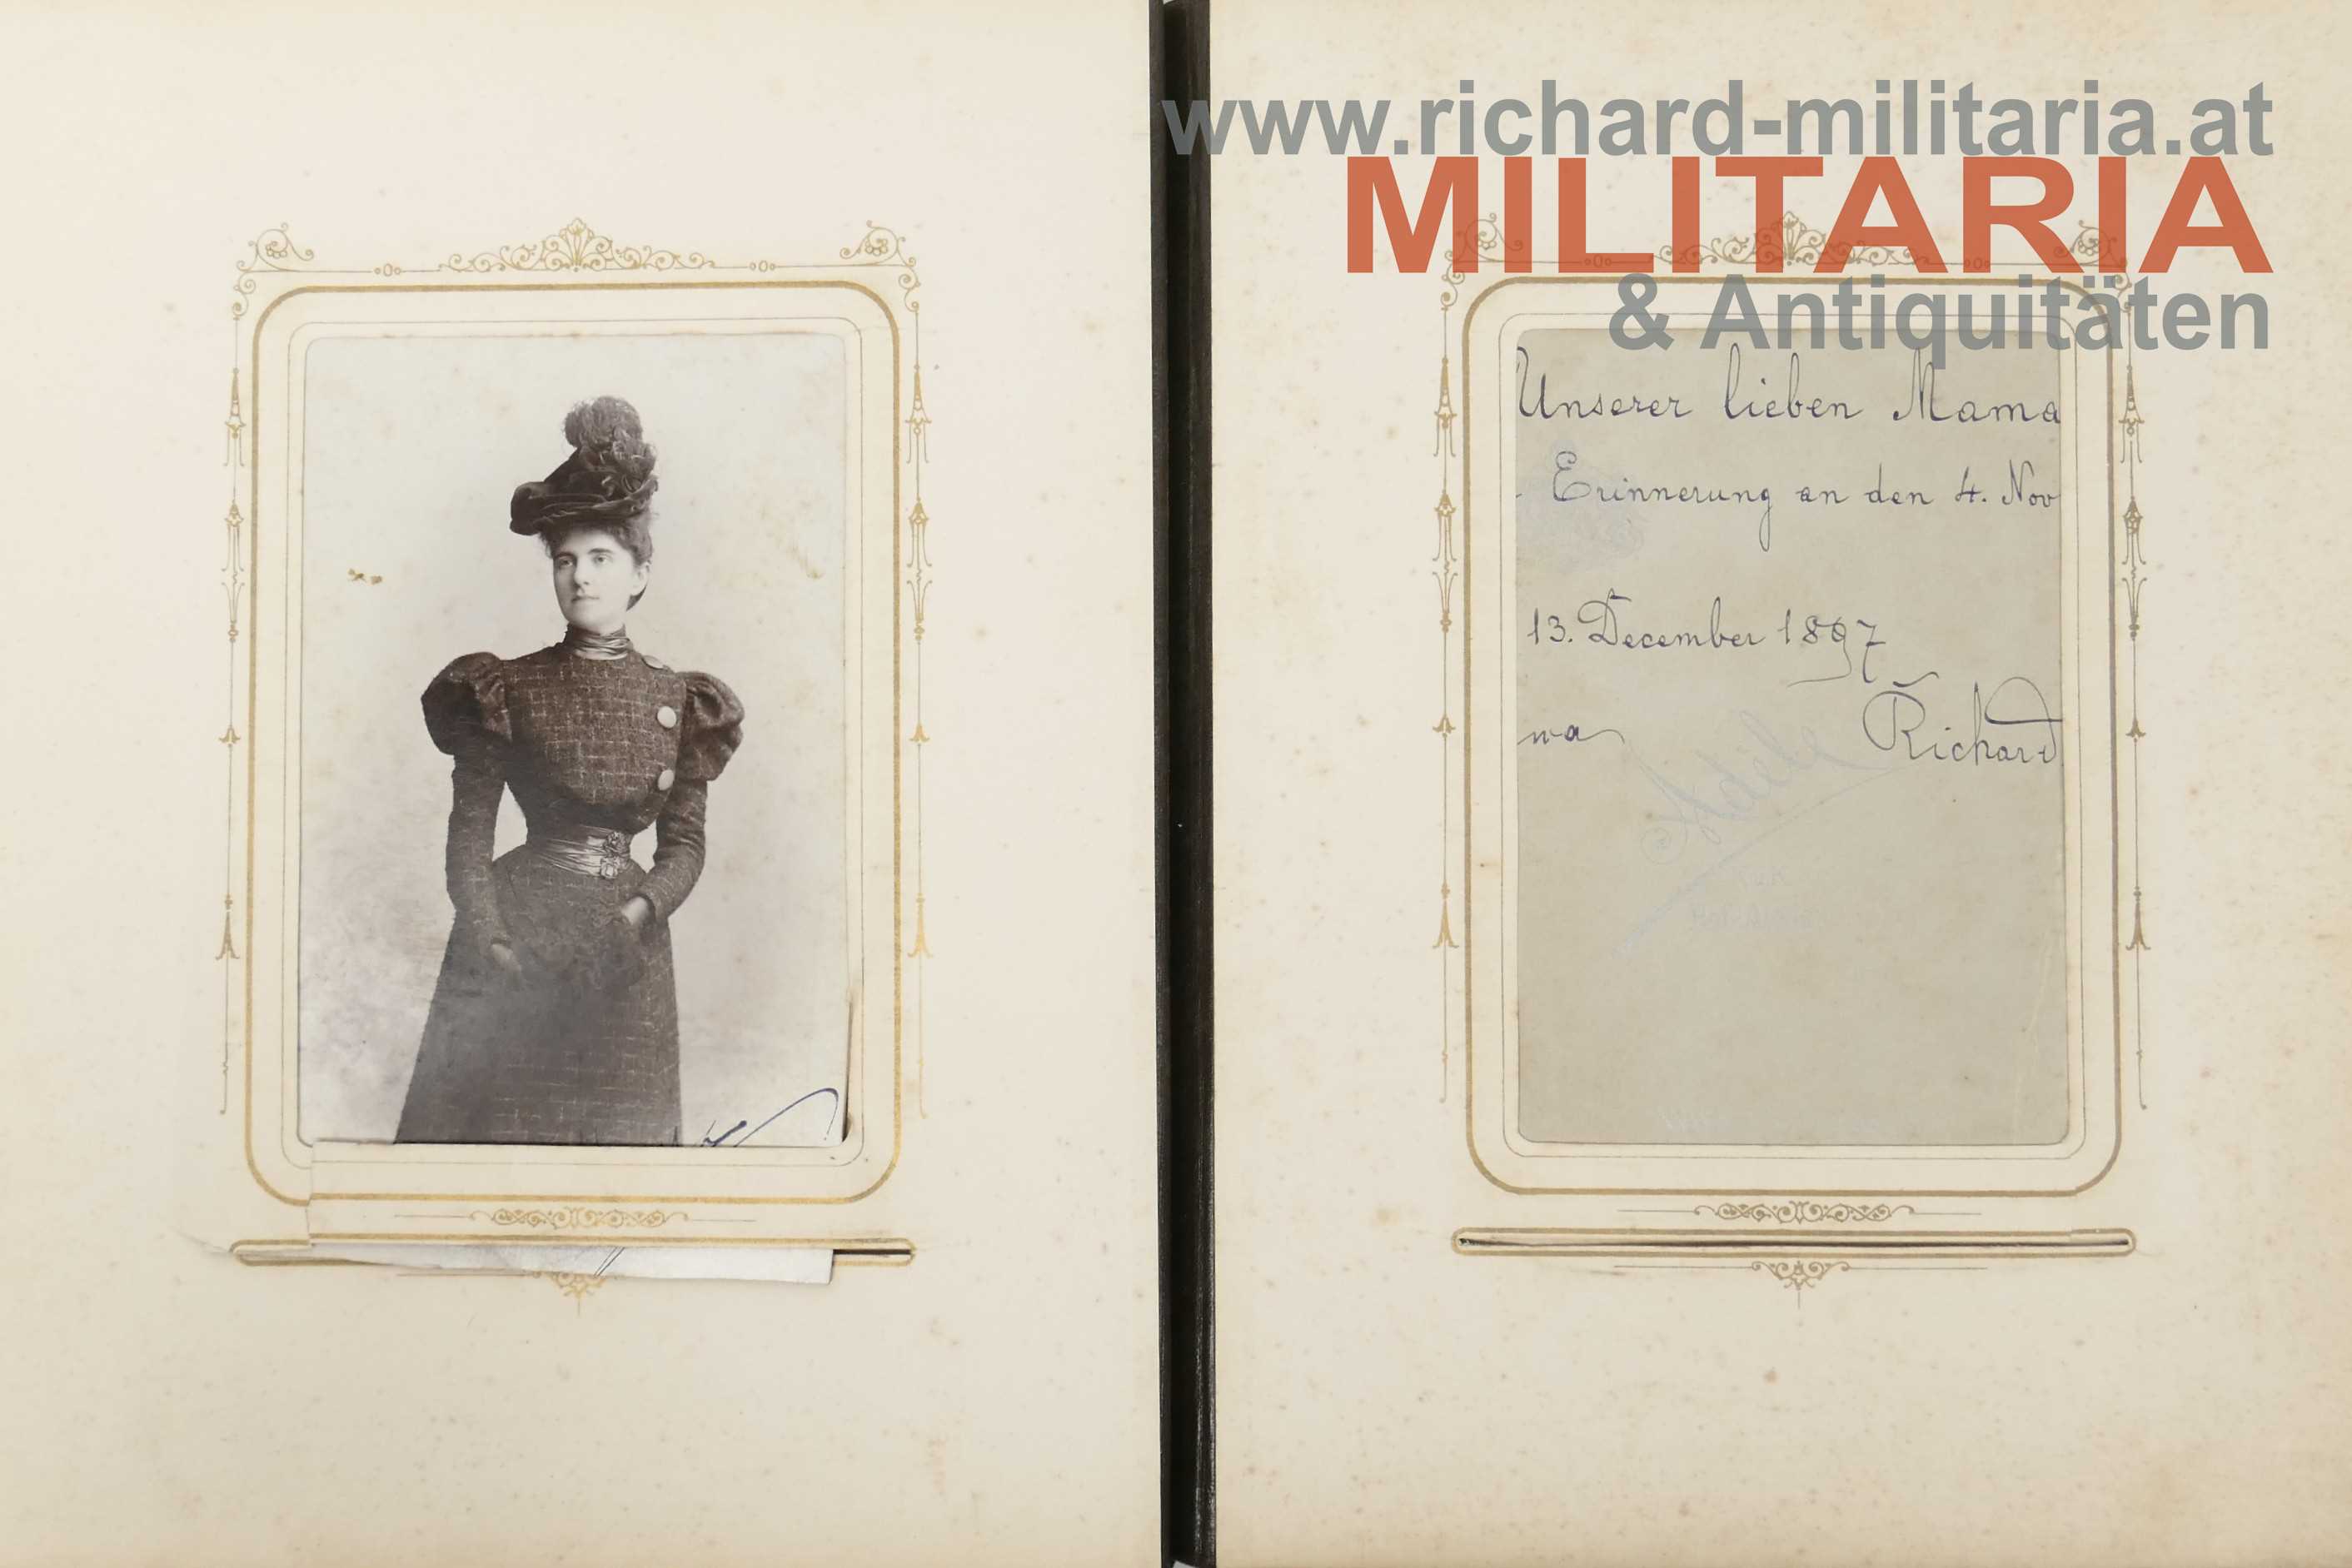 www.richard-militaria.at
MILITARIA
& Antiquitäten
Unserer lieben Mama
Erinnerung an den 4. Nov
13. December 1897
wa Richard
Adele